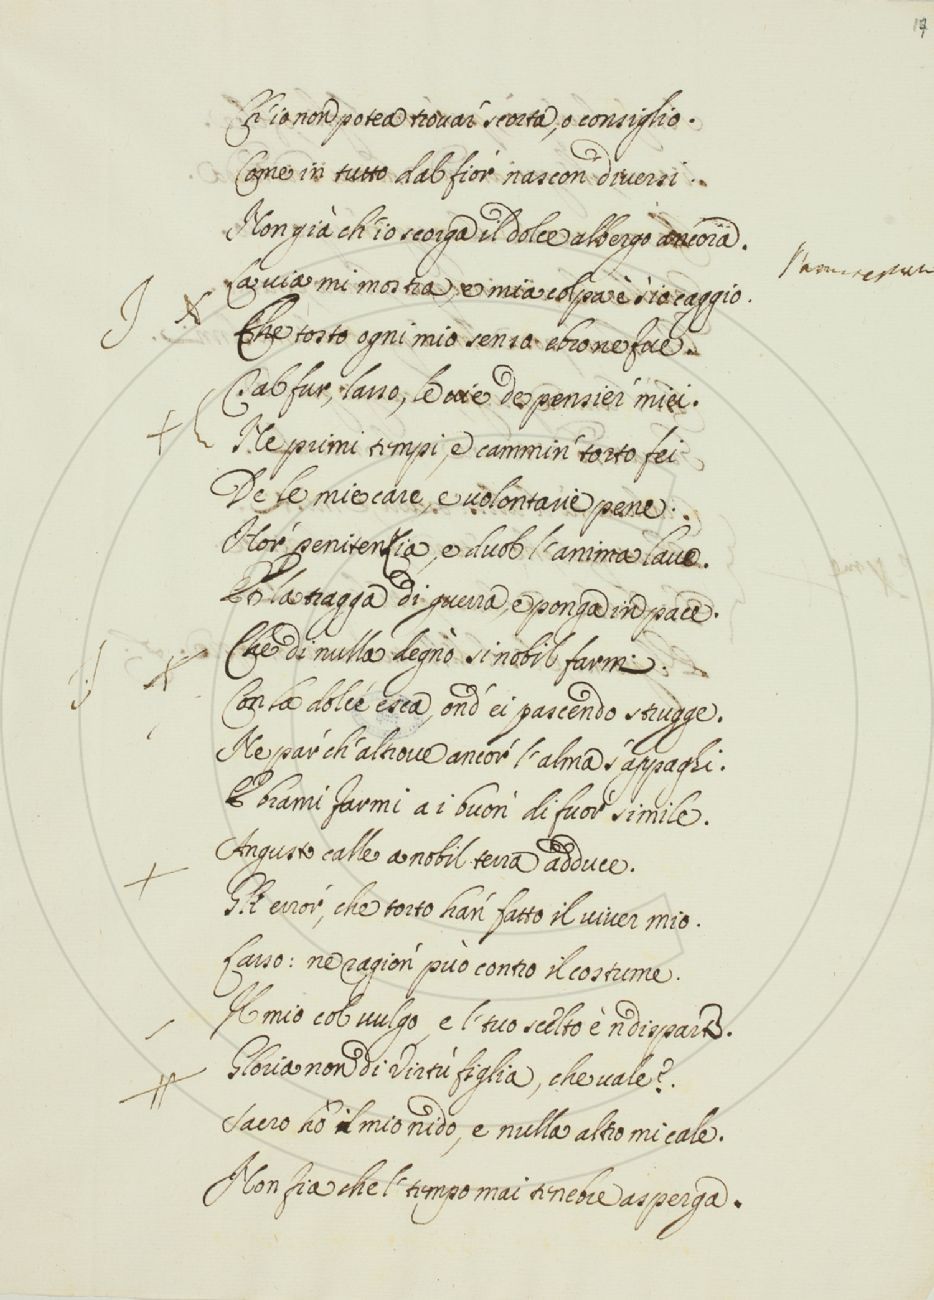 17
Ch'io non potea trovar scorta, o consiglio.
Come in tutto dal fior nascon diversi.
Non già ch'io scorga il dolce albergo ancora.
La via mi mostra, e mia colpa è s'io caggio.
Che tosto ogni mio senso ebro ne fue.
Cal fur, lasso, le vie de pensier miei.
Ne primi tempi, e cammin torto fei
De le mie care, e volontarie pene.
Hor penitenzia, e duol l'anima lave.
E la tragga di guerra, e ponga in pace.
Che di nulla degnò sì nobil farmi.
Con la dolce esca, ond'ei pascendo strugge.
Ne par ch'altrove ancor l'alma s'appaghi.
E brami farmi a i buon di fuor simile.
Angusto calle a nobil terra adduce.
Gli error, che torto han fatto il viver mio.
Lasso: ne ragion può contro il costume.
Il mio col vulgo, e l'tuo scelto è n disparte.
Gloria non di virtù figlia, che vale?
Sacro hò il mio nido, e nulla altro mi cale.
Non fia che l'tempo mai tenebre asperga.